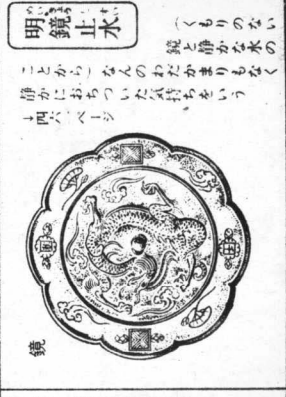 明鏡止水
めいきょうしすい
（くもりのない
鏡と静かな水の
ことから）なんのわだかまりもなく
静かにおちついた気持ちをいう
鏡